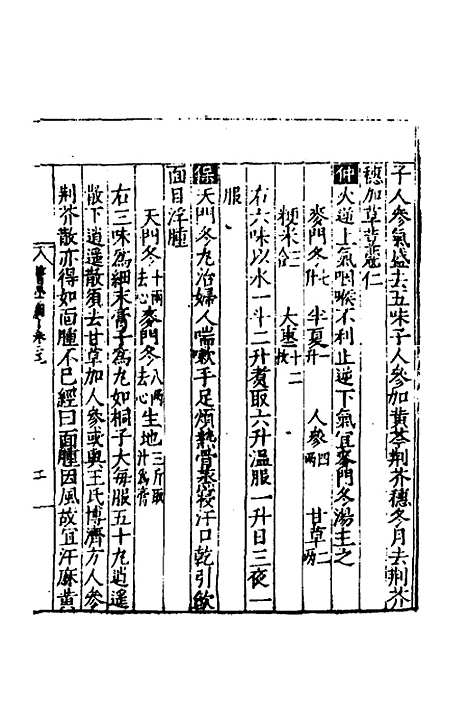 子人參氣盛去五味子人參加黃芩荆芥穗冬月去荆芥
穗加草荳蔻仁
仲火逆上氣咽喉不利止逆下氣宜麥門冬湯主之
麥門冬七升 半夏一升 人參四兩 甘草二兩
粳米合 大棗十二枚
右六味以水一斗二升煮取六升溫服一升日三夜一
服
保天門冬丸治婦人喘嗽手足煩熱骨蒸寢汗口乾引飲
面目浮腫
天門冬十兩去心 麥門冬八兩去心 生地三斤取汁爲膏
右三味爲細末膏子爲丸如桐子大每服五十丸逍遥
散下逍遥散須去甘草加人參或與王氏博濟方人參
荆芥散亦得如面腫不已經曰面腫因風故宜汗麻黃